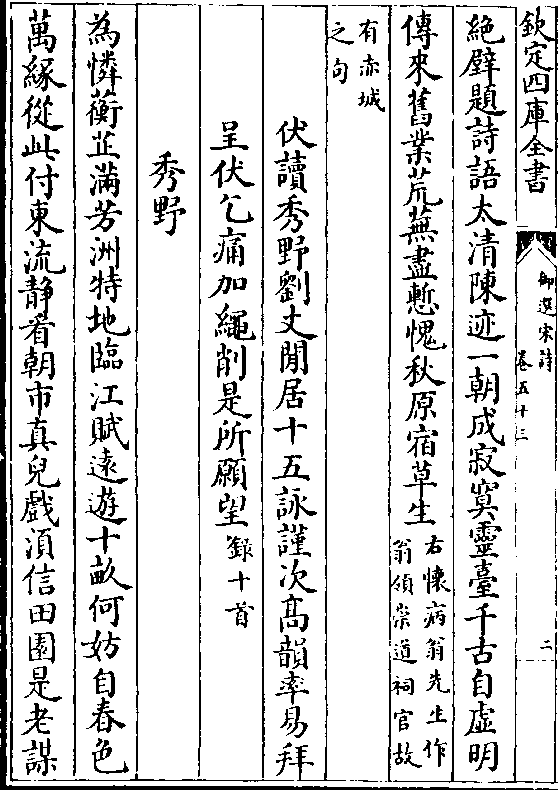 欽定四庫全書
御選宋詩
卷五十三
二
絶壁題詩語太清陳迹一朝成寂寞靈臺千古自虚明
傳來舊業荒蕪盡慙愧秋原宿草生
右懷病翁先生作
翁領崇道祠官故
有赤城
之句
伏讀秀野劉丈閒居十五詠謹次髙韻率易拜
呈伏乞痛加繩削是所願望
錄十首
秀野
為憐蘅芷滿芳洲特地臨江賦遠遊十畝何妨自春色
萬緣從此付東流静看朝市真兒戲須信田園是老謀